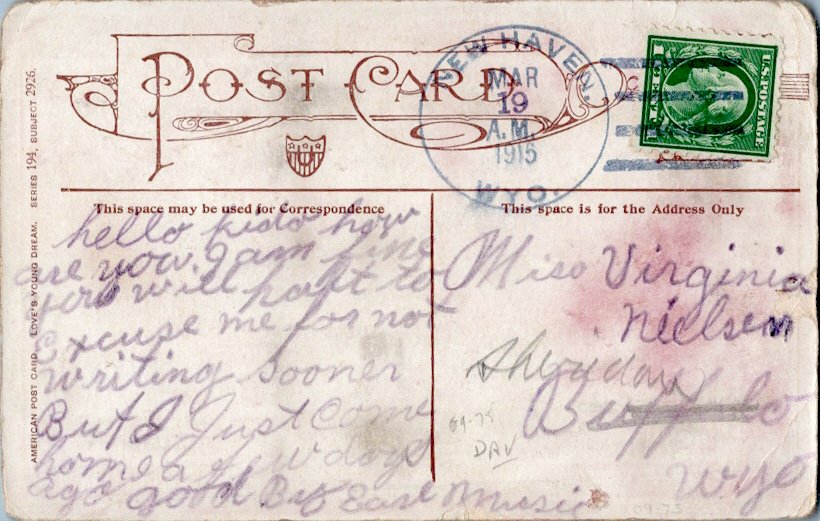 POST CARD
NEW HAVEN
MAR
19
A.M.
1915
WYO.
U.S. POSTAGE
This space may be used for Correspondence
This space is for the Address Only
hello kido how
are you I am fine
you will haft to
Excuse me for not
writing sooner
But I Just Come
home a few days
ago good By
Miss Virginia
Nielsen
Sheridan
Buffalo
Wyo
69-75
DAV
09-75
AMERICAN POST CARD. LOVE'S YOUNG DREAM. SERIES 194, SUBJECT 2926.